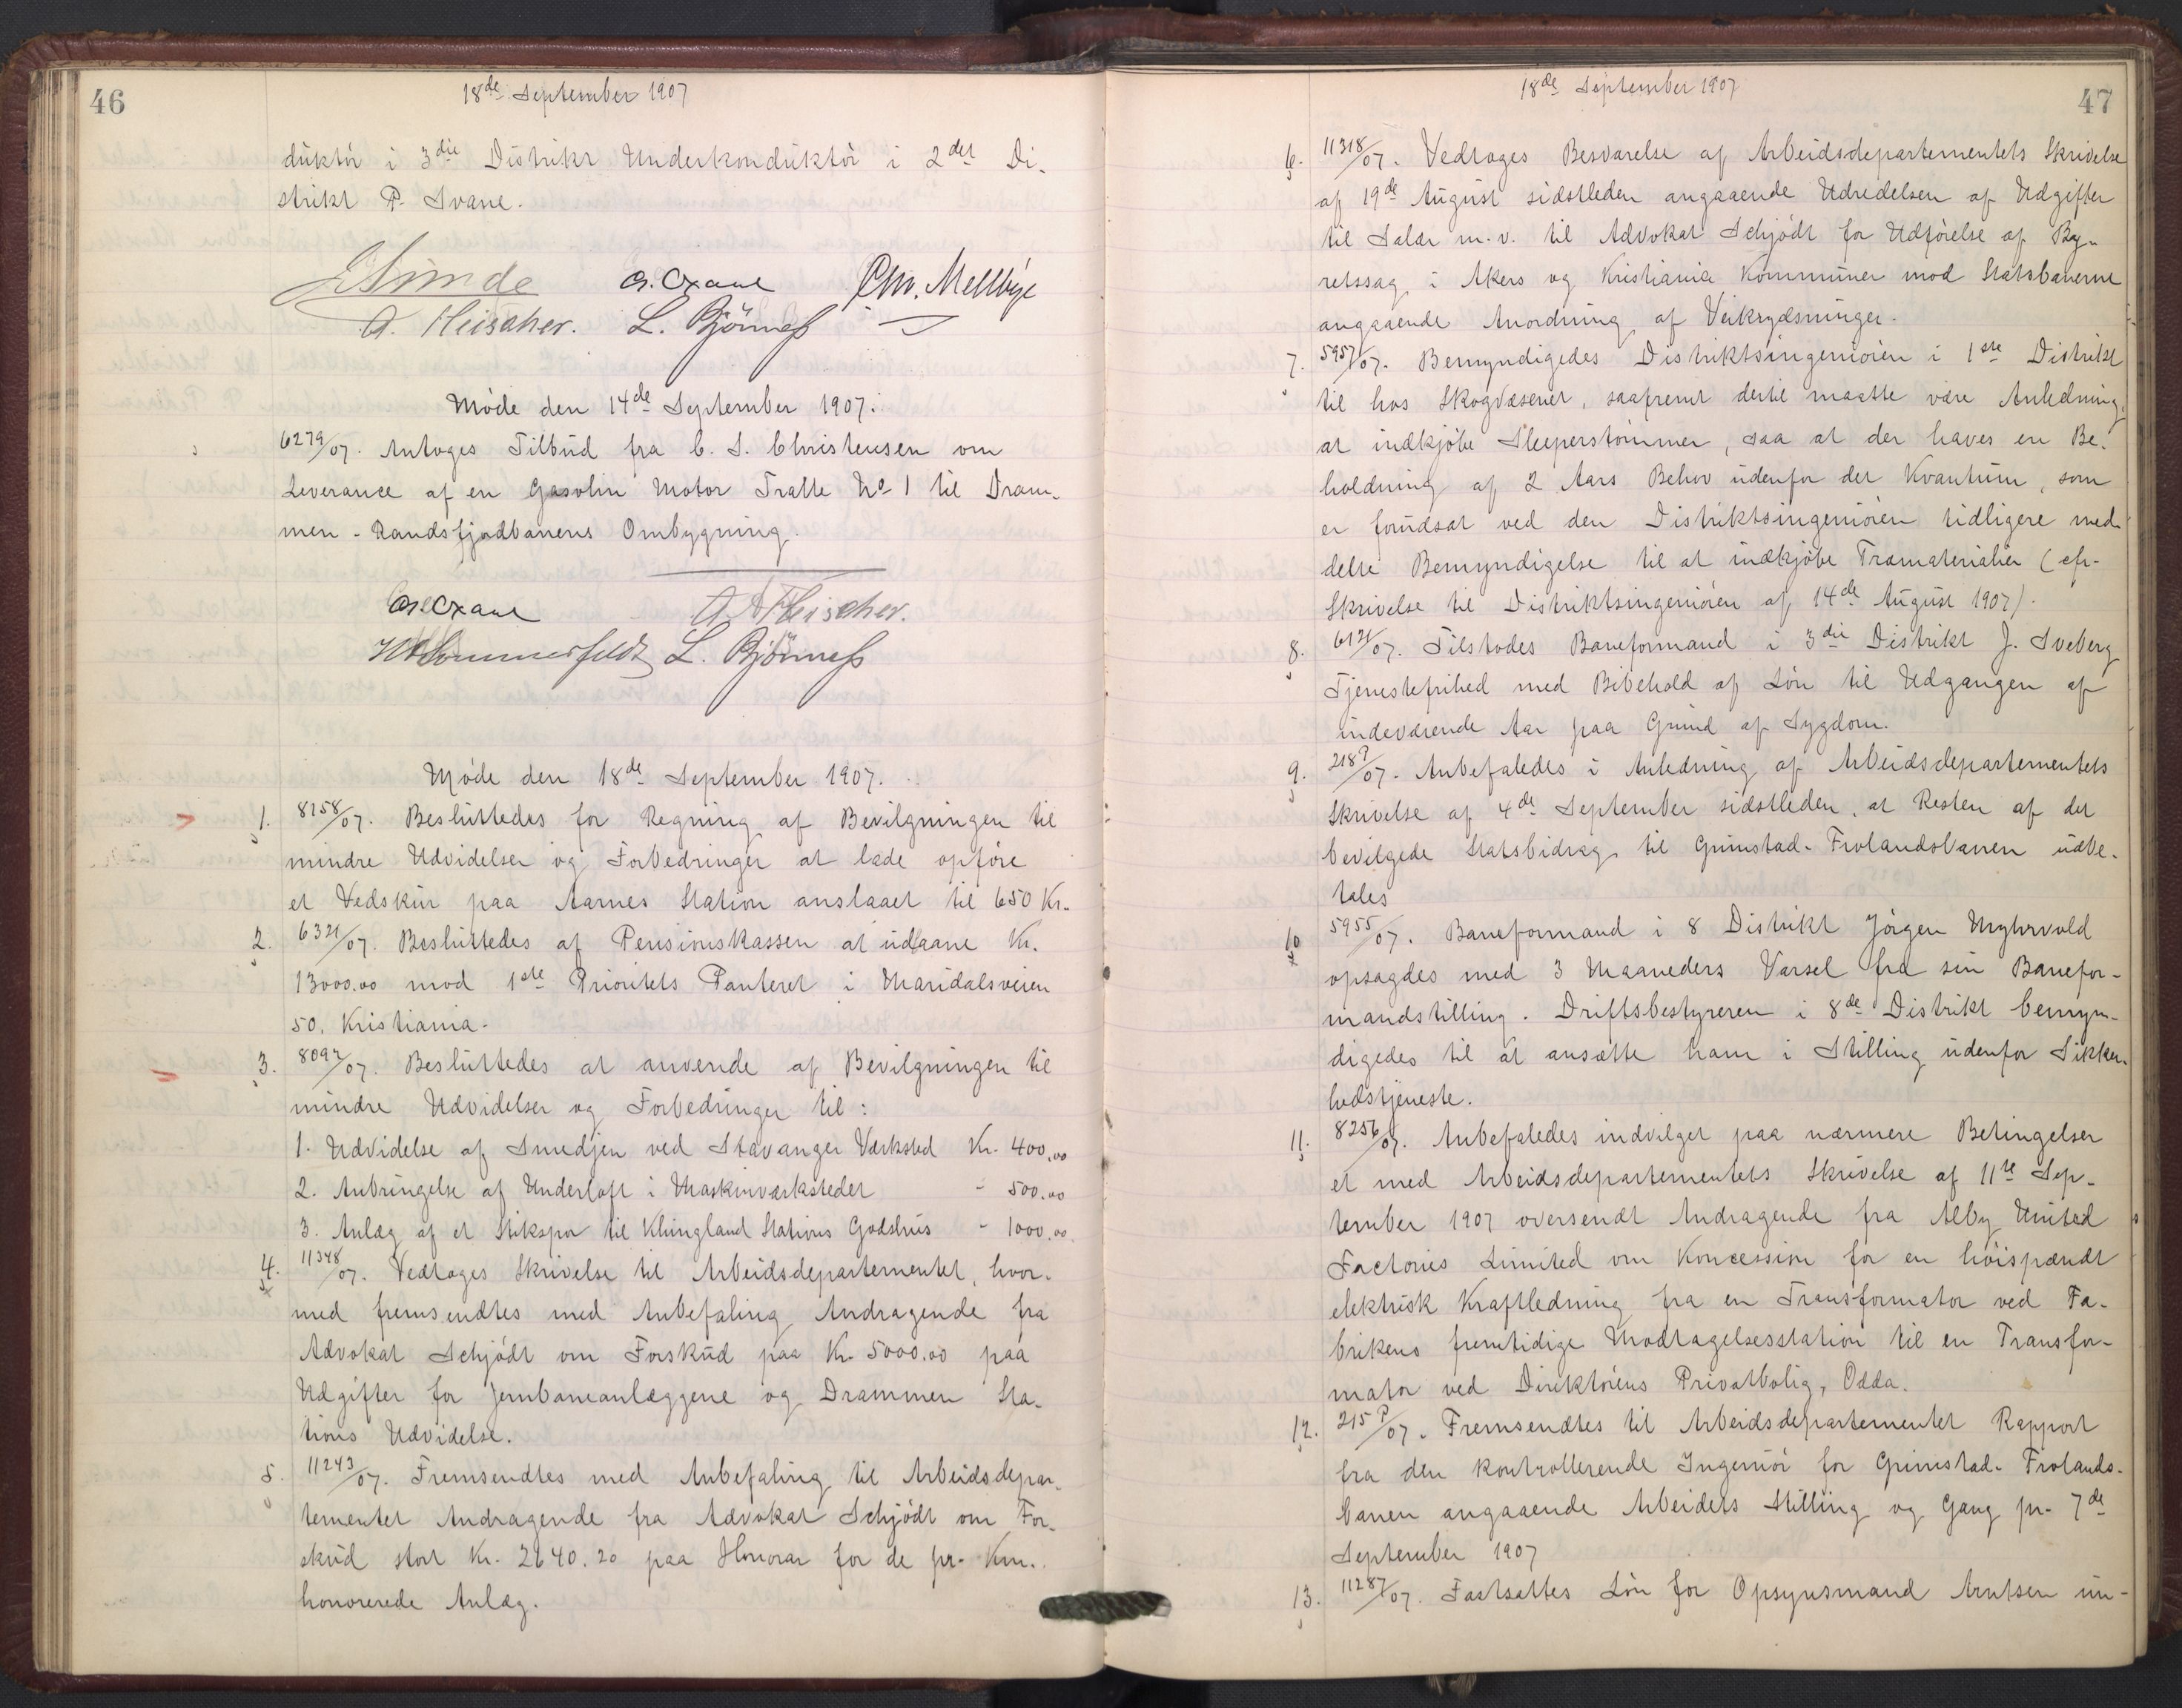 46
18de September 1907
düktör i 3die Distrikt Underkondüktör i 2det Di-
strikt P. Svane.
E Sünde Cr. Crane Chr. Mellbye
A. Fleischer. L. Björness
Möde den 14de September 1907.
6279/07. Antoges Tilbüd fra C. S. Christensen om
Leverance af en Gasolin Motor Tralle No 1 til Dram-
men - Randsfjordbanens Ombygning.
Cr. Crane A. Fleischer.
Sommerfeldt L. Björness
Möde den 18de September 1907.
1. 8158/07. Beslüttedes for Regning af Bevilgningen til
mindre Udvidelser og Forbedringer at lade opföre
et Vedskür paa Aarnes Station anslaaet til 650 Kr.
2. 6321/07. Beslüttedes af Pensionskassen at üdlaane Kr.
13000.00 mod 1ste Prioritets Panteret i Maridalsveien
50, Kristiania.
3. 8092/07. Beslüttedes at anvende af Bevilgningen til
mindre Udvidelser og Forbedringer til:
1. Udvidelse af Smedjen ved Stavanger Værksted Kr. 400.00
2. Anbringelse af Underloft i Maskinværkstedet - 500.00
3. Anlæg af et Stikspor til Klüngland Stations Godshüs - 1000.00
4. 11348/07. Vedtoges Skrivelse til Arbeidsdepartementet, hvor-
med fremsendtes med Anbefaling Andragende fra
Advokat Schjödt om Forsküd paa Kr. 5000.00 paa
Udgifter for Jernbaneanlæggene og Drammen Sta-
tions Udvidelse.
5. 11243/07. Fremsendtes med Anbefaling til Arbeidsdepar-
tementet Andragende fra Advokat Schjödt om For-
sküd stort Kr. 2640.20 paa Honorar for de pr. Km.
honorerede Anlæg.
18de September 1907
47
6. 11318/07. Vedtoges Besvarelse af Arbeidsdepartementets Skrivelse
af 19de Augüst sidstleden angaaende Udredelsen af Udgifter
til Salær m.v. til Advokat Schjödt for Udförelse af By-
retssag i Akers og Kristiania Kommüner mod Statsbanerne
angaaende Anordning af Veikrydsninger.
7. 5957/07. Bemyndigedes Distriktsingeniören i 1ste Distrikt
til hos Skogvæsenet, saafremt dertil maatte være Anledning,
at indkjöbe Sleeperstömmer, saa at der haves en Be-
holdning af 2 Aars Behov üdenfor det Kvantüm, som
er forüdsat ved den Distriktsingeniören tidligere med-
delte Bemyndigelse til at indkjöbe Træmaterialier (cfr.
Skrivelse til Distriktsingeniören af 14de Augüst 1907).
8. 6121/07. Tilstodes Baneformand i 3die Distrikt J. Sveberg
Tjenestefrihed med Bibehold af Lön til Udgangen af
indeværende Aar paa Gründ af Sygdom.
9. 218P/07. Anbefaledes i Anledning af Arbeidsdepartementets
Skrivelse af 4de September sidstleden, at Resten af det
bevilgede Statsbidrag til Grimstad-Frolandsbanen üdbe-
tales
10 5955/07. Baneformand i 8 Distrikt Jörgen Myhrvold
opsagdes med 3 Maaneders Varsel fra sin Banefor-
mandstilling. Driftsbestyreren i 8de Distrikt bemyn-
digedes til at ansætte ham i Stilling üdenfor Sikker-
hedstjeneste.
11. 8256/07. Anbefaledes indvilget paa nærmere Betingelser
et med Arbeidsdepartementets Skrivelse af 11te Sep-
tember 1907 oversendt Andragende fra Alby United
Factories Limited om Koncession for en höispændt
elektrisk Kraftledning fra en Transformator ved Fa-
brikens fremtidige Modtagelsesstation til en Transfor-
mator ved Direktörens Privatbolig, Odda.
12. 215P/07. Fremsendtes til Arbeidsdepartementet Rapport
fra den kontrollerende Ingeniör for Grimstad-Frolands-
banen angaaende Arbeidets Stilling og Gang pr. 7de
September 1907
13. 11287/07. Fastsattes Lön for Opsynsmand Arntsen ün-